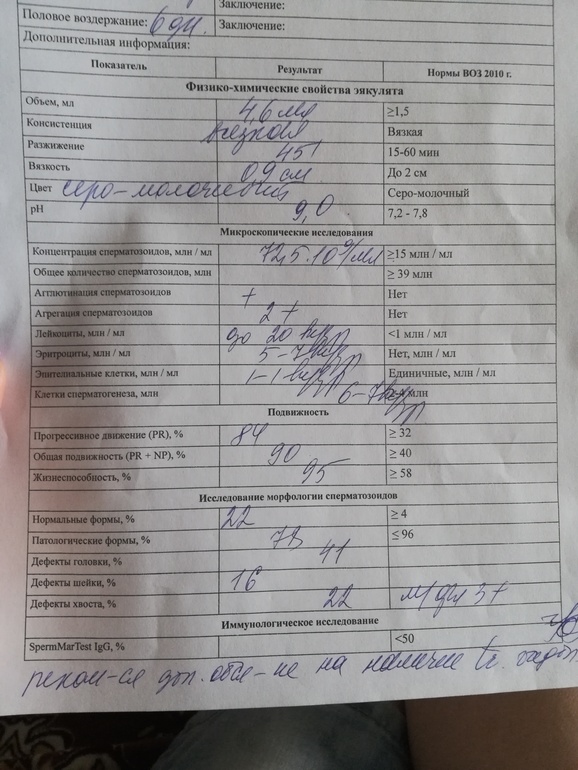 Заключение:
Половое воздержание: 6 дн. Заключение:
Дополнительная информация:
Показатель Результат Нормы ВОЗ 2010 г.
Физико-химические свойства эякулята
Объем, мл 4,6 мл ≥1,5
Консистенция вязкая Вязкая
Разжижение 45' 15-60 мин
Вязкость 0,9 см До 2 см
Цвет серо-молочный Серо-молочный
pH 9,0 7,2 - 7,8
Микроскопические исследования
Концентрация сперматозоидов, млн / мл ≥15 млн / мл
Общее количество сперматозоидов, млн ≥ 39 млн
Агглютинация сперматозоидов + Нет
Агрегация сперматозоидов 2+ Нет
Лейкоциты, млн / мл до 20 в п/зр <1 млн / мл
Эритроциты, млн / мл 5-7 в п/зр Нет, млн / мл
Эпителиальные клетки, млн / мл 1-1 в п/зр Единичные, млн / мл
Клетки сперматогенеза, млн 6-7 в п/зр млн
Подвижность
Прогрессивное движение (PR), % 84 ≥ 32
Общая подвижность (PR + NP), % 90 ≥ 40
Жизнеспособность, % 95 ≥ 58
Исследование морфологии сперматозоидов
Нормальные формы, % 22 ≥ 4
Патологические формы, % 78 ≤ 96
Дефекты головки, % 41
Дефекты шейки, % 16
Дефекты хвоста, % 22 3+
Иммунологическое исследование
SpermMarTest IgG, % <50
реком-ся доп. обсл-ие на наличие